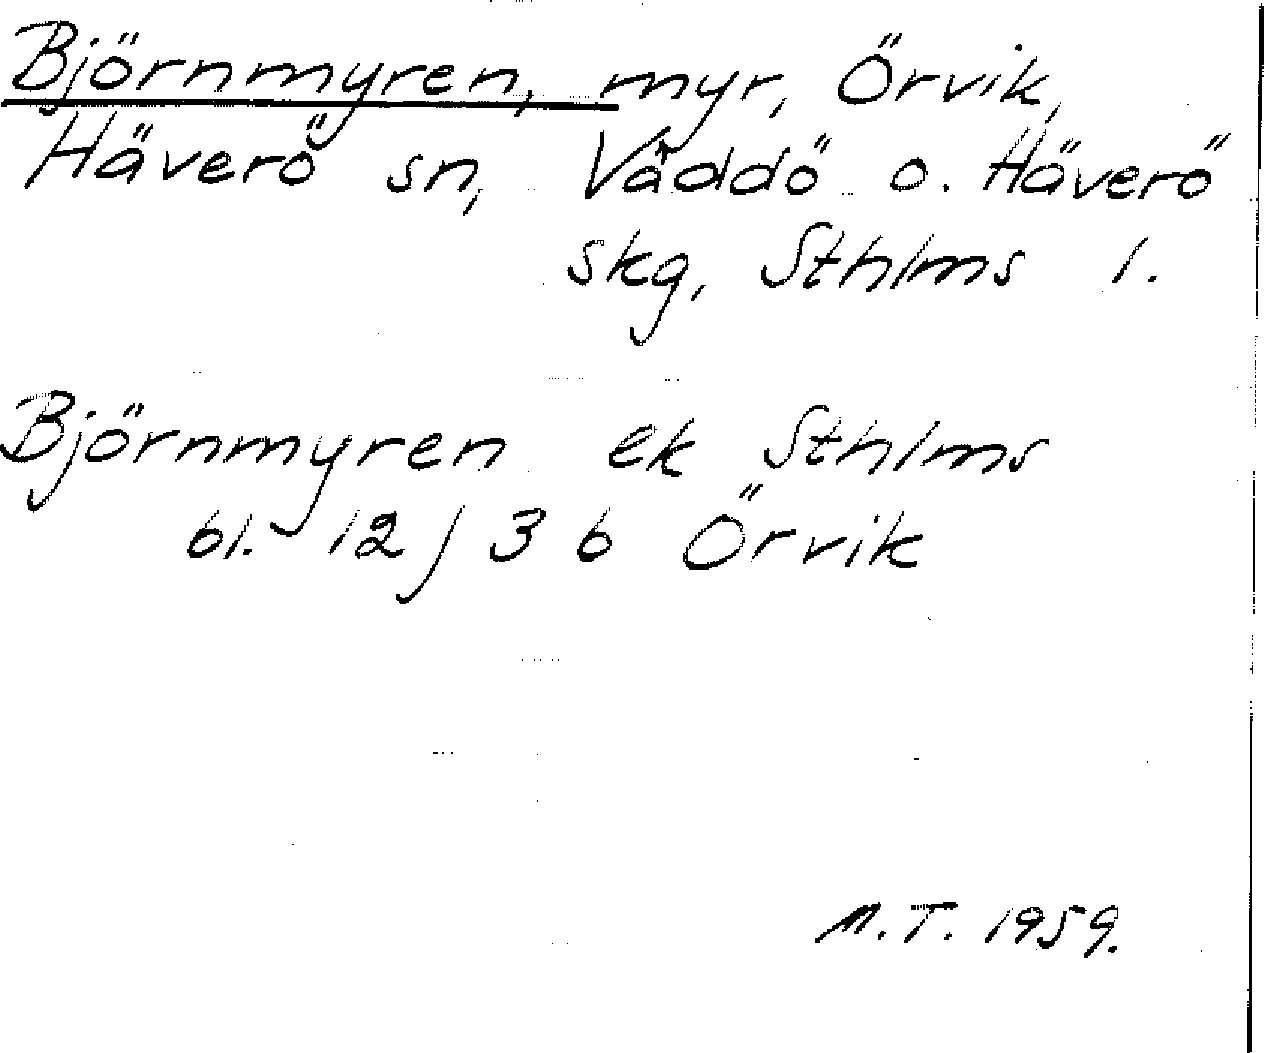 Björnmyren, myr, Örvik,
Häverö sn, Väddö o. Häverö
skg, Sthlms l.
Björnmyren ek Sthlms
bl. 12 / 3 b Örvik
M.T. 1959.